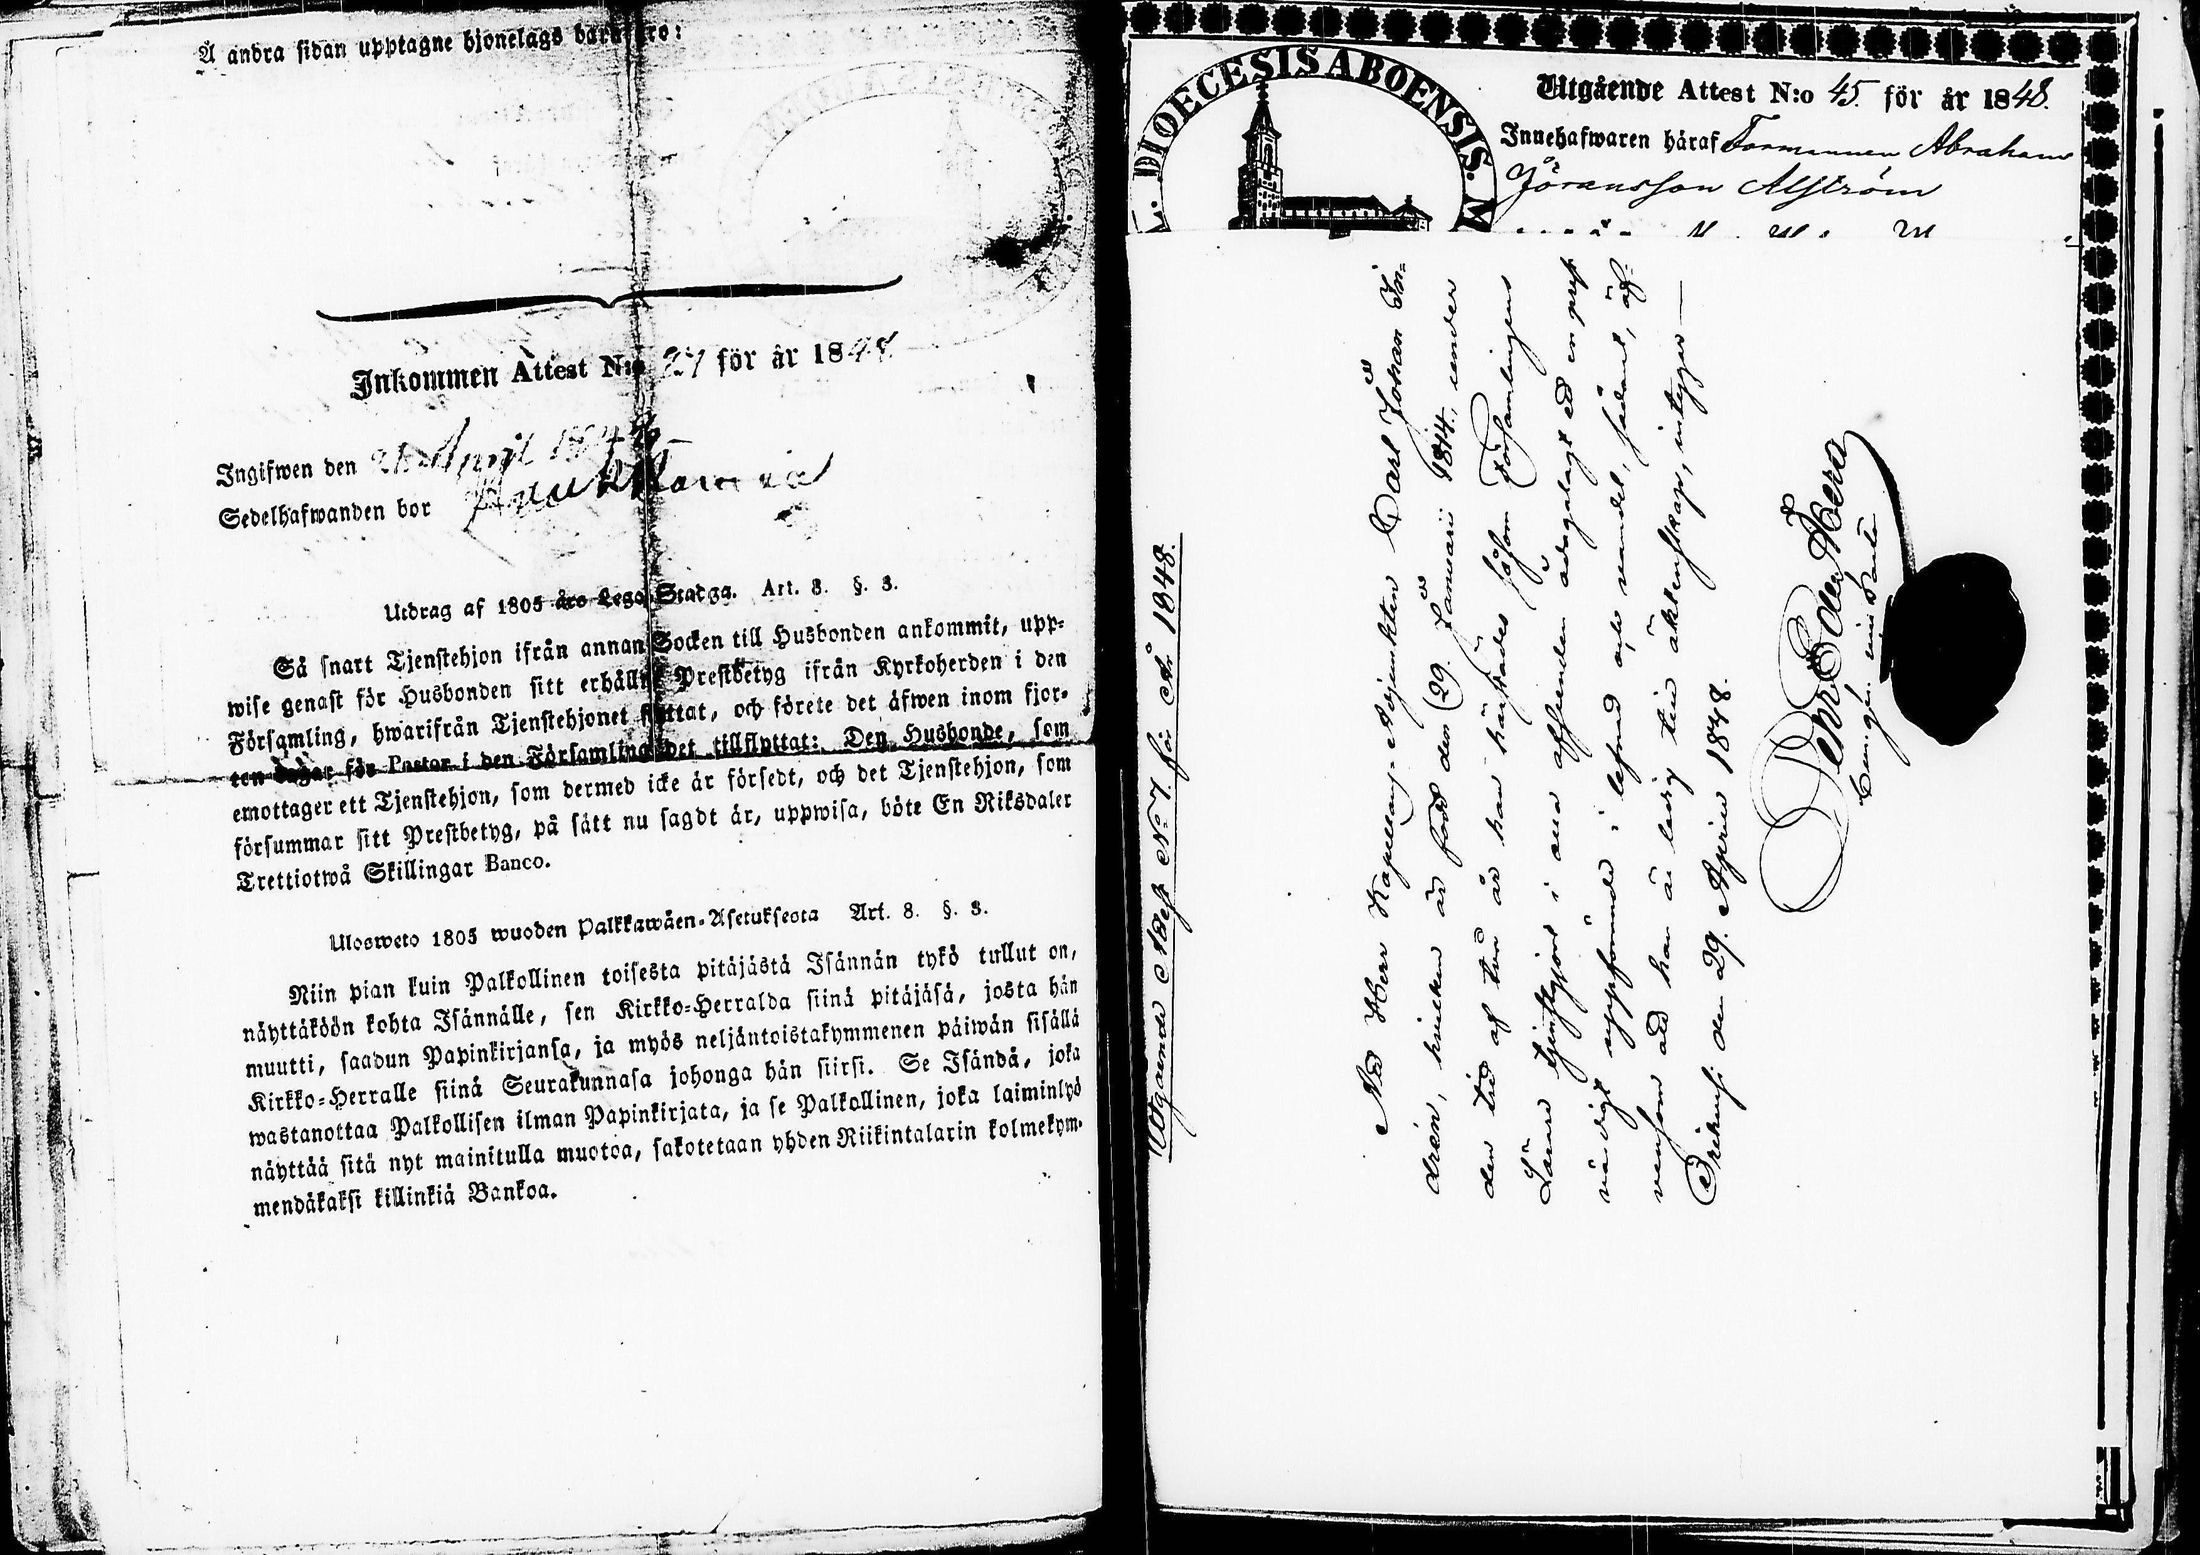 Å andra sidan upptagne hjonelags barn äro:
Inkommen Attest N:o 27 för år 1848.
Ingifwen den 21 April 1848
Sedelhafwanden bor
Utdrag af 1805 års Lego Stadga. Art. 8. §. 3.
Så snart Tjenstehjon ifrån annan Socken till Husbonden ankommit, upp-
wise genast för Husbonden sitt erhållne Prestbetyg ifrån Kyrkoherden i den
Församling, hwarifrån Tjenstehjonet flyttat, och förete det äfwen inom fjor-
ton dagar för Pastor i den Församling det tillflyttat: Den Husbonde, som
emottager ett Tjenstehjon, som dermed icke är försedt, och det Tjenstehjon, som
försummar sitt Prestbetyg, på sätt nu sagdt är, uppwisa, böte En Riksdaler
Trettiotwå Skillingar Banco.
Ulosweto 1805 wuoden Palkkawäen-Asetuksesta Art. 8. §. 3.
Niin pian kuin Palkollinen toisesta pitäjästä Isännän tykö tullut on,
näyttäköön kohta Isännälle, sen Kirkko-Herralda siinä pitäjäsä, josta hän
muutti, saadun Papinkirjansa, ja myös neljäntoistakymmenen päiwän sisällä
Kirkko-Herralle siinä Seurakunnasa johonga hän siirsi. Se Isändä, joka
wastanottaa Palkollisen ilman Papinkirjata, ja se Palkollinen, joka laiminlyö
näyttää sitä nyt mainitulla muotoa, sakotetaan yhden Riikintalarin kolmekym-
mendäkaksi killinkiä Bankoa.
DIOECESIS ABOENSIS.
Utgående Attest N:o 45. för år 1848.
Innehafwaren häraf Tormannen Abraham
Jöransson Alström
Utgående Attest No 7. för År 1848.
Att Herr Kapellans-Adjunkten Carl Johan In-
drén, hvilken är född den 29. Januarii 1814, under
den tid af två år han härstädes såsom Församlingens
Lärare tjenstgjort i alla afseenden ådagalagt ett en prest
värdigt uppförande i lefnad och vandel, sådant, äf-
vensom att han är ledig till äktenskap, intygar
den 29. April 1848.